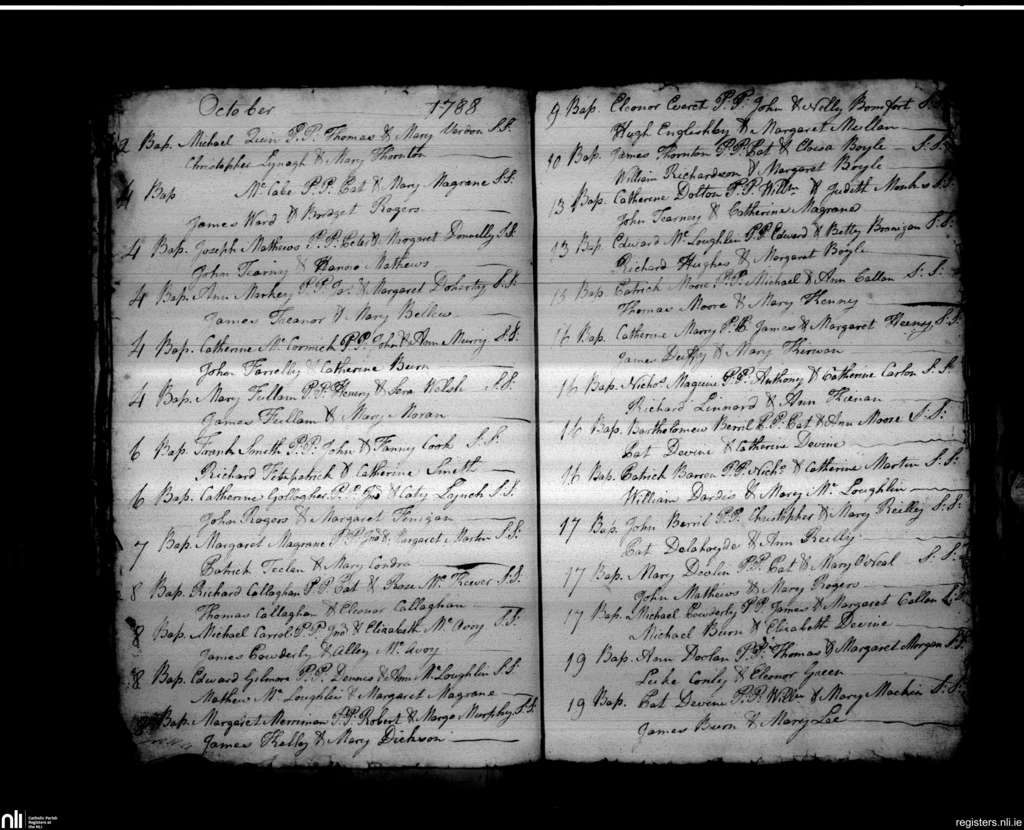 October 1788
2 Bap. Michael Quin P.P. Thomas & Mary S.S.
Christopher Lynagh & Mary Thornton
4 Bap Mc Cabe P.P. Pat & Mary Magrane S.S:
James Ward & Bridget Rogers
4 Bap. Joseph Mathews P.P. Peter & Margaret Donnelly S.S.
John Tearney & Mathews
4 Bap. Ann Markey P.P. Jas. & Margaret Doherty S.S:
James Treanor & Mary Bellew
4 Bap. Catherine Mc Cormick P.P. John & Ann Murry S.S:
John Farrelly & Catherine Burn
4 Bap. Mary Fullam P.P. Henry & Sera Walsh S.S.
James Fullam & Mary Moran
6 Bap. Frank Smith P.P. John & Fanny Cook S.S.
Richard Fitzpatrick & Catherine Smith
6 Bap. Catherine Gollogher P.P. Jno & Caty Lynch S.S.
John Rogers & Margaret Finigan
7 Bap. Margaret Magrane P.P. Jno & Margaret Martin S.S:
Patrick Feelan & Mary Condra
8 Bap. Richard Callaghan P.P. Pat & Rose Mc Keever S.S.
Thomas Callaghan & Eleonor Callaghan
8 Bap. Michael Carrol P.P. Jno & Elizabeth Mc Avoy S.S:
James Cowderly & Alley Mc Avoy
8 Bap. Edward Gilmore P.P. Dennis & Ann Mc Loughlin S.S
Mathew Mc Loughlin & Margaret Magrane
8 Bap. Margaret Merriman P.P. Robert & Marge Murphy S.S
James Kelly & Mary Dickson
9 Bap. Eleonor Everet P.P. John & Nelly Bomfort S.S
Hugh Englishby & Margaret Mullan
10 Bap. James Thornton P.P. Pat & Elisa Boyle S.S.
William Richardson & Margaret Boyle
13 Bap. Catherine Dolton P.P. Willm & Judith Monks S.S:
John Tearney & Catherine Magrane
13 Bap. Edward Mc Loughlin P.P. Edward & Betty Branigan S.S:
Richard Hughes & Margaret Boyle
15 Bap. Patrick Moore P.P. Michael & Ann Callan S.S:
Thomas Moore & Mary Kenny
16 Bap. Catherine Marry P.P. James & Margaret Heeney S.S
James Duffy & Mary Kirwan
16 Bap. Nichos Maguire P.P. Anthony & Catherine Carlon S.S.
Richard Linnard & Ann Kienan
16 Bap. Bartholomew Berril P.P. Pat & Ann Moore S.S:
Pat Devine & Catherine Devine
16 Bap. Patrick Barron P.P. Nichs & Catherine Martin S.S:
William Dardis & Mary Mc Loughlin
17 Bap. John Berril P.P. Christopher & Mary Reilley S.S:
Pat Delahoyde & Ann Reilly
17 Bap. Mary Devlin P.P. Pat & Mary ONeal S.S:
John Mathews & Mary Rogers
17 Bap. Michael Cowderly P.P. James & Margaret Callan S.S.
Michael Burn & Elizabeth Devine
19 Bap. Ann Doolan P.P. Thomas & Margaret Morgan S.S
Luke Conly & Eleonor Green
19 Bap. Pat Devine P.P. Willm & Mary Mackin S.S:
James Burn & Mary Lee
nli Catholic Parish
Registers at
the NLI
registers.nli.ie